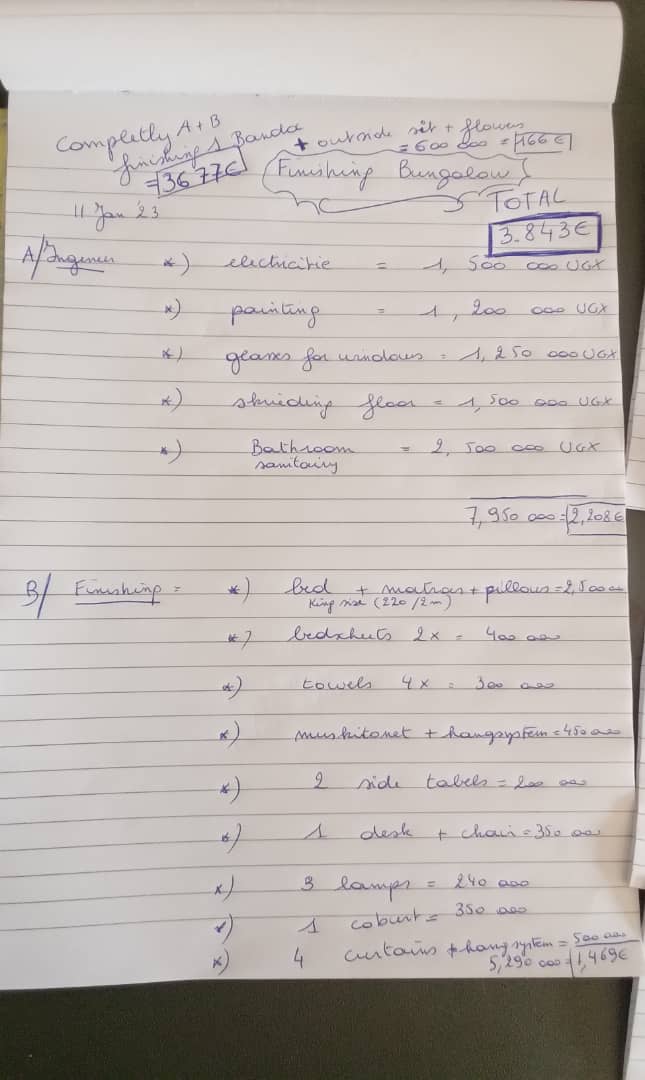 Completly A + B
finishing 1 Banda
= 3677€
+ outside sit + flowers
= 600 000 = 166€
Finishing Bungalow
11 Jan '23
TOTAL
3.843€
A/ Ingeneer *) electricitie = 1, 500 000 UGX
*) painting = 1, 200 000 UGX
*) glasses for windows = 1, 250 000 UGX
*) skrieding floor = 1, 500 000 UGX
*) Bathroom = 2, 500 000 UGX
sanitairy
7, 950 000 = 2,208€
B/ Finishing = *) bed + matras + pillous = 2,500 000
King size (220/2m)
*) bedshuts 2x = 400 000
*) towels 4x = 300 000
*) muskitonet + hangsystem = 450 000
*) 2 side tabels = 200 000
*) 1 desk + chair = 350 000
*) 3 lamps = 240 000
*) 1 coburt = 350 000
*) 4 curtains + hangsystem = 500 000
5,290 000 = 1,469€